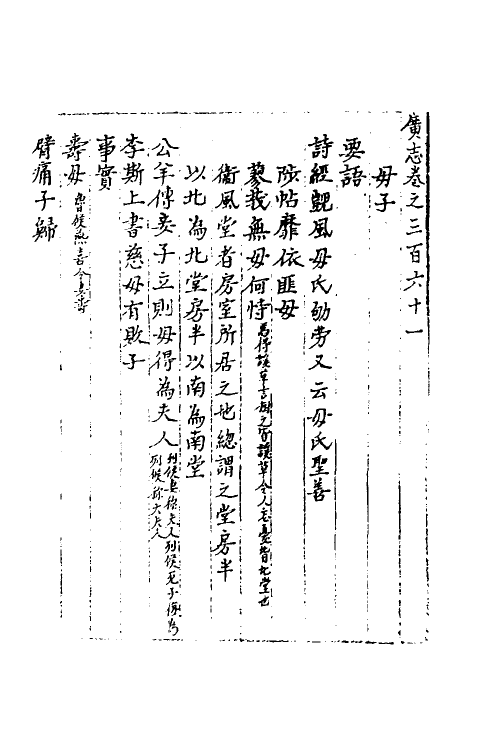 廣志卷之三百六十一
母子
要語
詩經凱風母氏劬勞又云母氏聖善
陟岵靡依匪母
蓼莪無母何恃焉得諼草言樹之背諼草令人忘憂背北堂也
衛風堂者房室所居之地總謂之堂房半
以北為北堂房半以南為南堂
公羊傳妾子立則母得為夫人列侯妻稱夫人列侯死子復為列侯称太夫人
李斯上書慈母有敗子
事實
壽母魯侯燕喜令妻壽
臂痛子歸